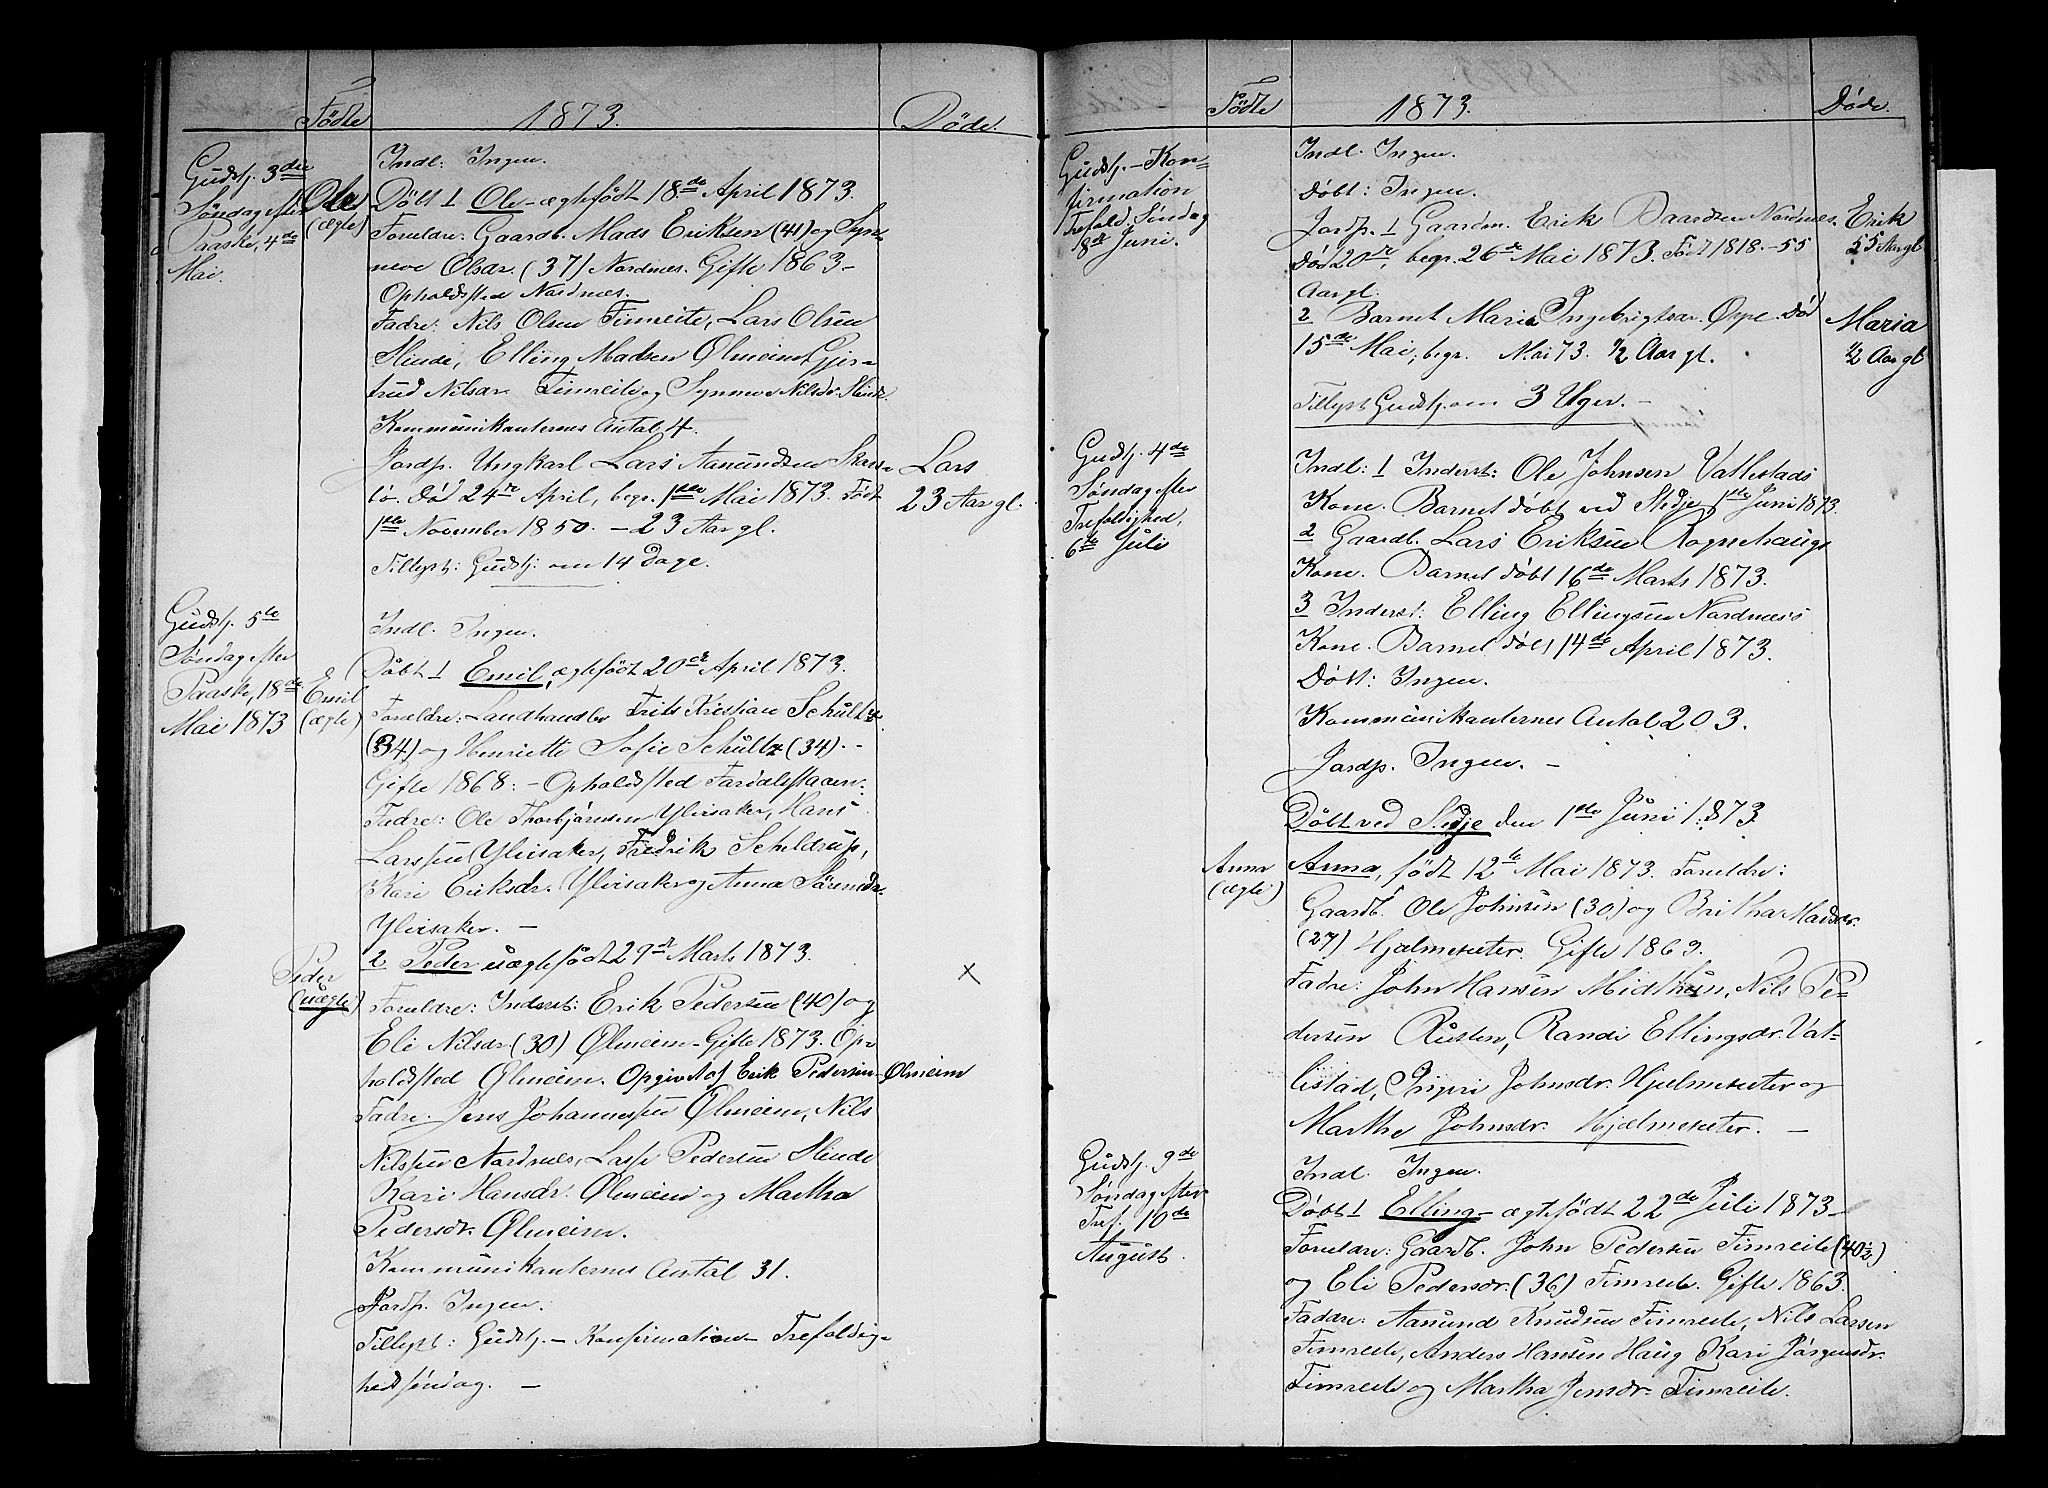 Fødte
1873.
Döde.
Gudstj. 3die
Søndag efter
Paaske, 4de
Mai.
Ole
(ægte)
Indl: Ingen.
Döbt 1 Ole - ægtefödt 18de April 1873.
Foreldre: Gaardb. Mads Eriksen (41) og Syn-
neve Olsdr. (37) Nordnes. Gifte 1863 -
Opholdssted Nordnæs.
Fadre: Nils Olsen Fimreite, Lars Olsen
Slinde, Elling Madsen Ølmeim, Gjer-
trud Nilsdr. Fimreite og Synneve Nilsdr. Slinde.
Kommunikanternes Antal 4.
Jordp. Ungkarl Lars Aamundsen
Død 24de April, begr. 1ste Mai 1873. Födt
1ste November 1850. - 23 Aar gl.
Tillyst: Gudstj. om 14 Dage.
Lars
23 Aar gl.
Gudstj. 5te
Søndag efter
Paaske, 18de
Mai 1873
Emil
(ægte)
Indl. Ingen.
Døbt 1 Emil, ægtefödt 20de April 1873.
Forældre: Landhandler Frits Kristian Schultz
(34) og Henriette Sofie Schultz (34). -
Gifte 1868: - Opholdssted Fardalsstaaen.
Fadre: Ole Thorbjörnsen Ylvisaker, Hans
Larssen Ylvisaker, Fredrik Scheldrup,
Kari Eriksdr. Ylvisaker og Anna Sörensdr.
Ylvisaker. -
Peder
(uægte)
2 Peder uægtefödt 29de Marts 1873.
Foreldre: Inderst: Erik Pedersen (40) og
Eli Nilsdr (30) Ølmeim - Gifte 1873. Op-
holdssted Ølmeim. Opgivet af Erik Pedersen Ølmeim
Fadre. Jens Johannessen Ølmeim, Nils
Nilssen Nordnæs, Lasse Pedersen Slinde
Kari Hansdr. Ølmeim og Martha
Pedersdr. Ølmeim.
Kommunikanternes Antal 31.
Jordp. Ingen.
Tillyst: Gudstj. - Konfirmation - Trefoldig-
hedssøndag. -
x
Födte
1873.
Døde.
Gudstj. - Kon-
firmation
Trefold. Søndag
8de Juni.
Indl. Ingen.
Døbt: Ingen.
Jordp. 1 Gaardm. Erik Baardsen Nordnæs.
Död 20de, begr. 26de Mai 1873. Födt 1818. - 55
Aar gl.
2 Barnet Maria Ingebrigtsdr. Øppe. Død
15de Mai, begr. Mai 73. 1/2 Aar gl.
Tillyst Gudstj. om 3 Uger. -
Erik
55 Aar gl
Maria
1/2 Aar gl
Gudstj. 4de
Søndag efter
Trefoldighed,
6te Juli
Indl: 1 Inderst: Ole Johnsen Vallestads
Kone. Barnet döbt ved Stedje 1ste Juni 1873.
2 Gaardb. Lars Eriksen Rognehaugs
Kone. Barnet döbt 16de Marts 1873.
3 Inderst: Elling Ellingsen Nordnæs's
Kone. Barnet døbt 14de April 1873.
Døbt: Ingen.
Kommunikanternes Antal 203.
Jordp. Ingen. -
Döbt ved Stedje den 1ste Juni 1873.
Anna
(ægte)
Anna, födt 12te Mai 1873. Foreldre:
Gaardb. Ole Johnsen (30) og Britha Madsdr.
(27) Hjelmeseter. Gifte 1869.
Fadre: John Hansen Midthun, Nils Pe-
dersen Rusten, Randi Ellingsdr. Val-
lestad, Johnsdr. Hjelmeseter og
Marthe Johnsdr. Hjelmeseter. -
Gudstj. 9de
Søndag efter
Tref. 10de
August.
Indl. Ingen.
Döbt 1 Elling - ægtefödt 22de Juli 1873 -
Foreldre: Gaardb. John Pedersen Fimreite (40 1/2)
og Eli Pedersdr. (36) Fimreite. Gifte 1863.
Faddre: Aamund Knudsen Fimreite, Nils Larsen
Fimreite, Anders Hansen Haug Kari Jörgensdr.
Fimreite og Martha Jensdr. Fimreite.